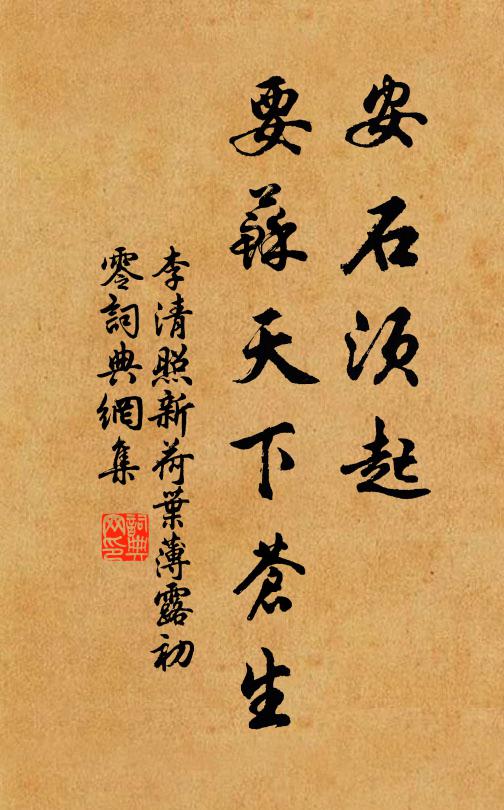 安石须起
要蘇天下蒼生
李清照新荷葉薄露初
零詞典網集
詞典
网印